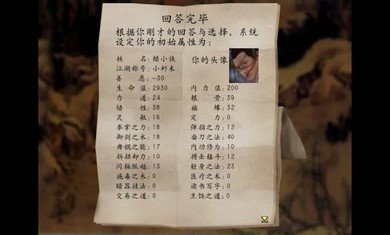 回答完毕
根据你刚才的回答与选择，系统
设定你的初始属性为：
姓名：醋小侠
你的头像
江湖称号：小虾米
善恶：-30
生命值：2930 内力值：200
力道：24 根骨：39
悟性：38 福缘：32
灵敏：16 定力：0
拳掌之力：18 弹指之力：12
御剑之术：18 耍刀之法：40
舞棍之能：17 内功修为：10
拆招卸力：10 搏击格斗：12
闪躲纵越：13 轻身之法：25
施毒之术：0 医疗之术：0
暗器技法：0 读书写字：0
交易之道：0 烹饪之道：0